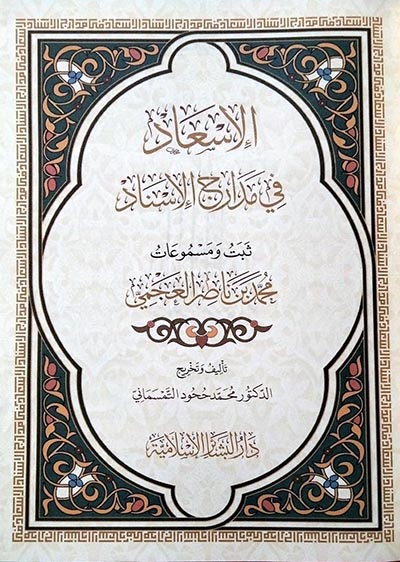 الإسعاد
في مدارج الإسناد
ثبت ومسموعات
محمد بن ناصر العجمي
تأليف وتخريج
الدكتور محمد حخود التمسماني
دار البشائر الإسلامية